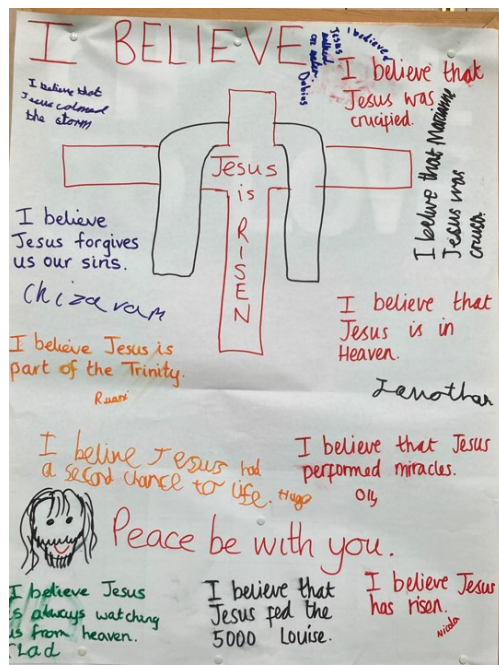 I BELIEVE
I believed
Jesus
walked
on water.
I believe that
Jesus calmed
the storm
I believe that
Jesus was
crucified.
I believe that Marianne
Jesus was
Jesus
is
RISEN
I believe
Jesus forgives
us our sins.
Chizaram
I believe that
Jesus is in
Heaven.
I believe Jesus is
part of the Trinity.
Ruari
I beline Jesus had
a second chance to life. Hugo
I believe that Jesus
performed miracles.
Olly
Peace be with you.
I believe Jesus
is always watching
us from heaven.
I believe that
Jesus fed the
5000 Louise.
I believe Jesus
has risen.
Nicola